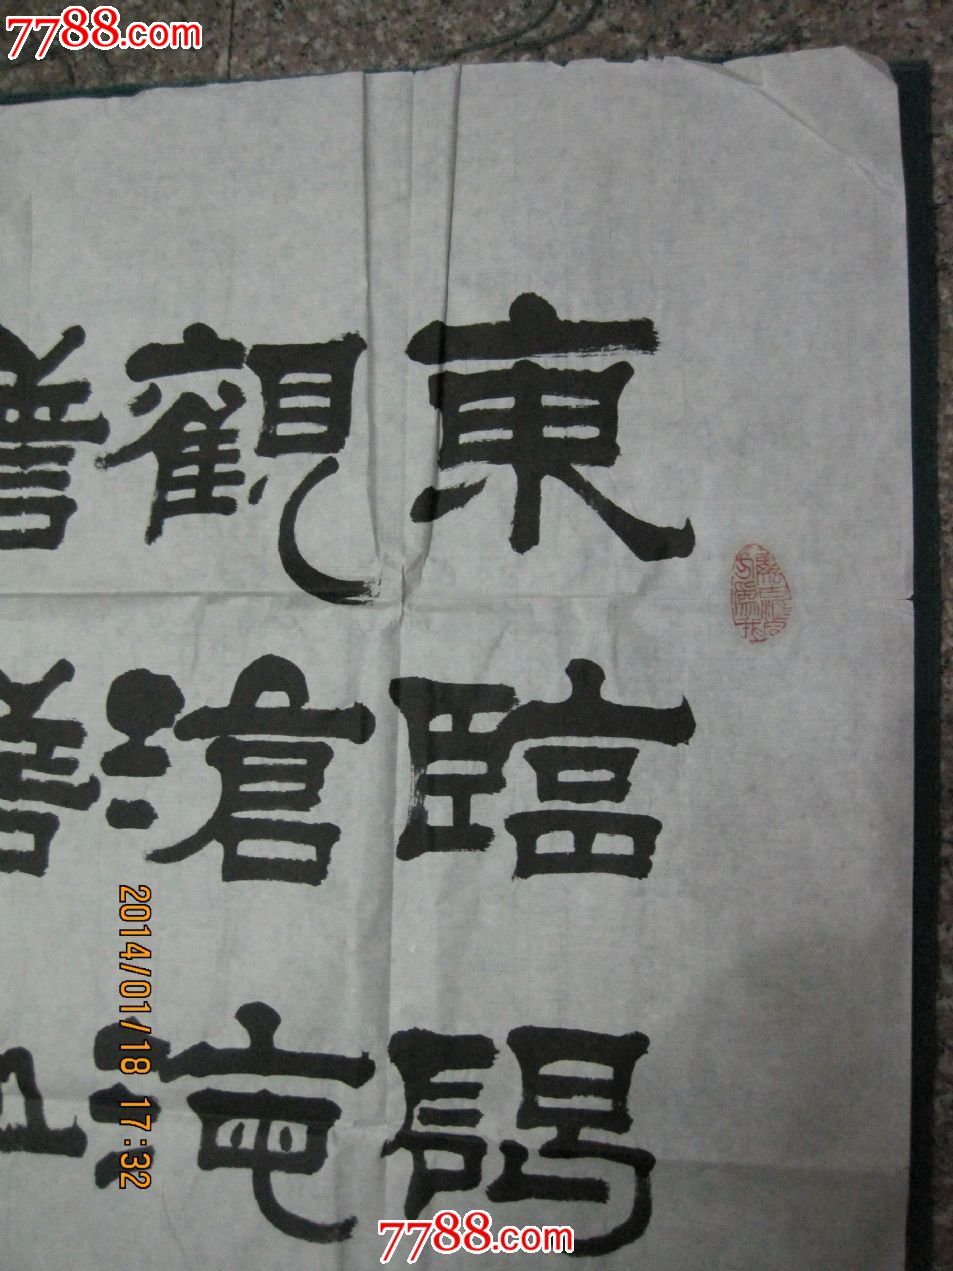 7788.com
東臨碣
觀滄海
2014/01/18 17:32
7788.com